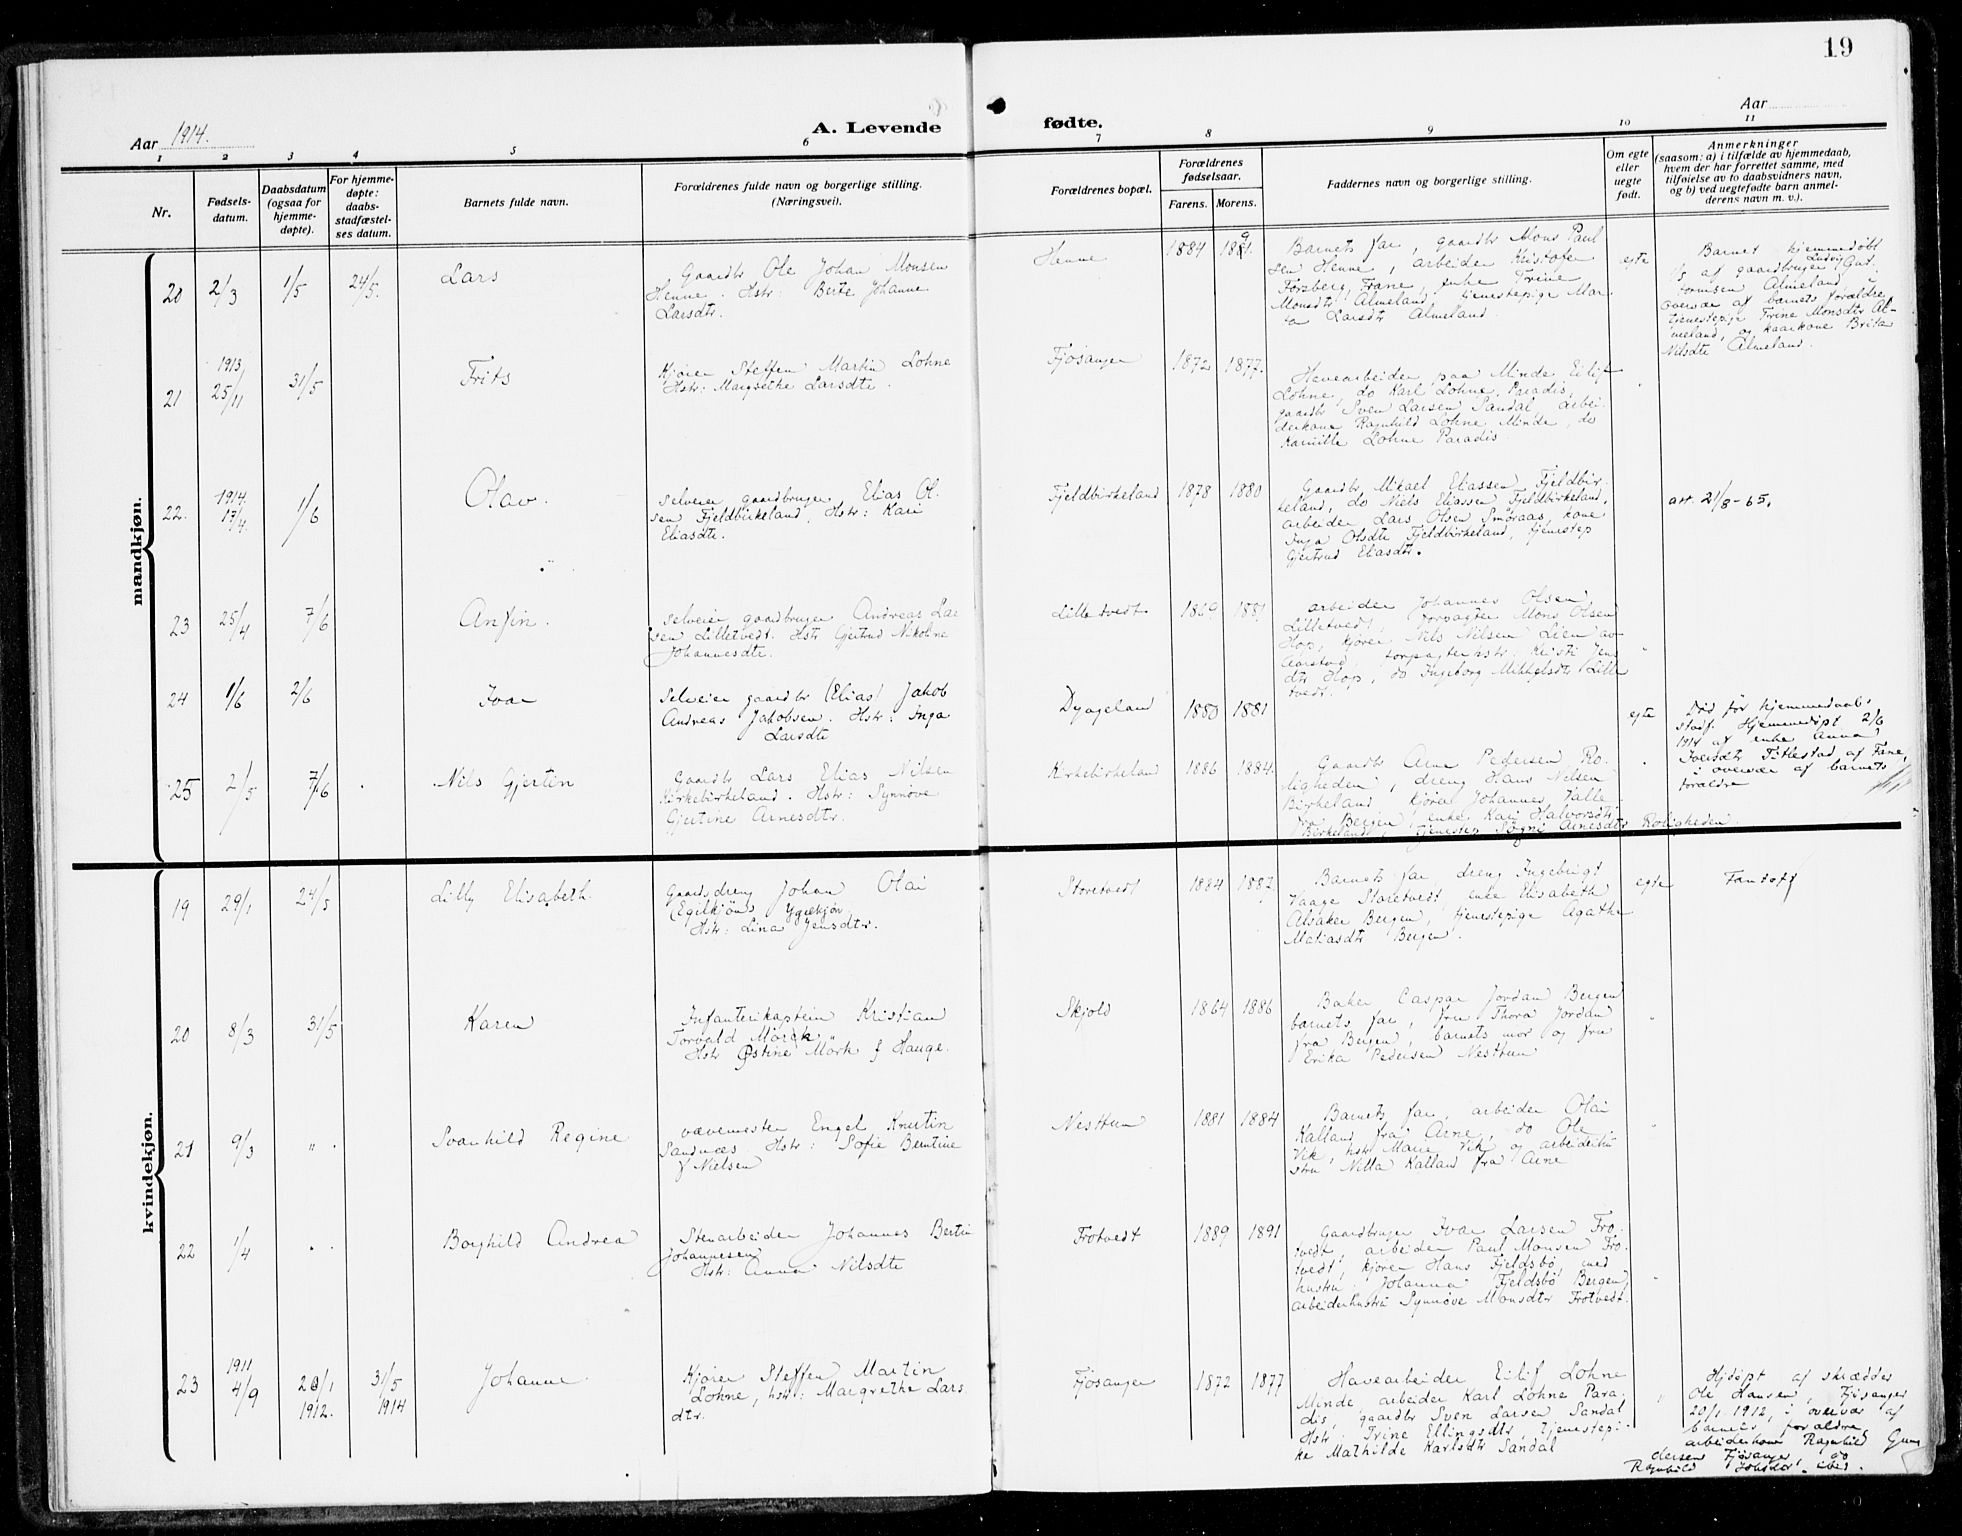 19
Aar 1914.
A. Levende
fødte.
Aar
1 2 3 4 5 6 7 8 9 10 11
Nr.
Fødsels-
datum.
Daabsdatum
(ogsaa for
hjemme-
døpte).
For hjemme-
døpte:
daabs-
stadfæstel-
ses datum.
Barnets fulde navn.
Forældrenes fulde navn og borgerlige stilling.
(Næringsvei).
Forældrenes bopæl.
Forældrenes
fødselsaar.
Farens. Morens.
Faddernes navn og borgerlige stilling.
Om egte
eller
uegte
født.
Anmerkninger
(saasom: a) i tilfælde av hjemmedaab,
hvem der har forrettet samme, med
tilføielse av to daabsvidners navn,
og b) ved uegtefødte barn anmel-
derens navn m. v.).
mandkjøn.
20 2/3 1/5 24/5. Lars
Gaardbr Ole Johan Monsen
Henne. Hstr: Berte Johanne
Larsdtr.
Henne 1884
Barnets far, gaardbr Mons Paul
sen Henne, arbeider Kristofer
Forsberg, Frane, enke Trine
Monsdtr Almeland, tjenestepige Mar
ta Larsdtr Almeland.
egte
Barnet hjemmedøbt
af gaardbruger Ludvig
Almeland, i
overvær af barnets forældre,
tjenestepige Trine Monsdtr Al-
meland, og kaarkone Brita
Nilsdtr Almeland.
21 1913 25/11 31/5 Frits
Kjører Steffen Martin Lohne
Hstr: Margrethe Larsdtr.
Fjøsanger 1872 1877.
Havearbeider paa Minde Eilif
Lohne, do Karl Lohne, Paradis,
gaardbr Sven Larsen Sandal, arbei-
derkone Ragnhild Lohne Minde, do
Kamille Lohne Paradis.
22. 1914. 17/4 1/6 Olav.
selveier gaardbruger Elias Ol-
sen Fjeldbirkeland, Hstr: Kari
Eliasdtr.
Fjeldbirkeland 1878 1880
Gaardbr Mikael Eliassen Fjeldbir-
keland, do Niels Eliassen Fjeldbirkeland,
arbeider Lars Olsen Smøraas, kone
Inga Olsdtr Fjeldbirkeland, tjenestep
Gjertrud Eliasdtr.
att 21/8-65.
23 25/4 7/6 Anfin.
selveier gaardbruger Andreas Lar
sen Lilletvedt. Hstr Gjertrud Nikoline
Johannesdtr.
Lilletvedt 1869 1881
arbeider Johannes Olsen
Lilletvedt, forpagter Mons Olsen
Hop, kjører Nils Nilsen Lien av
Aarstad, forpagterhstr. Kristi Jens
dtr Hop, do Ingeborg Mikkelsdtr Lille
tvedt.
24 1/6 2/6 Ivar
Selveier gaardbr (Elias) Jakob
Andreas Jakobsen. Hstr: Inga
Larsdtr
Dyngeland 1880 1881
egte
Død før hjemmedaabs
stadf. Hjemmedøpt 2/6
1914 af enke Anna
Iversdtr Tittlestad af Fane,
i overvær af barnets
forældre
25 2/5 7/6 Nils Gjertin
Gaardbr Lars Elias Nilsen
Kirkebirkeland. Hstr: Synnøve
Gjertine Arnesdtr.
Kirkebirkeland 1886 1884.
Gaardbr Arne Pedersen Ro-
ligheden, dreng Hans Nilsen
Birkeland, kjører Johannes Valle
fra Bergen, enke Kari Halvorsdtr
Birkeland, tjenestep Sygni Arnesdtr Roligheden.
kvindekjøn.
19 29/1 24/5 Lilly Elisabeth.
Gaardsdreng Johan Olai
(Egilkjøns Yggekjør
Hstr: Lina Jensdtr.
Storetvedt 1884 1882
Barnets far, dreng Ingebrigt
Vaage Storetvedt, enke Elisabeth
Alsaker Bergen, tjenestepige Agathe
Matiasdtr Bergen.
egte Fantoft
20 8/3 31/5 Karen
Infanterikaptein Kristian
Torvald Mørck
Hstr Østine Mørk f Hauge.
Skjold 1864 1886
Baker Caspar Jordan Bergen
barnets far, fru Thora Jordan
fra Bergen, barnets mor og fru
Erika Pedersen Nesttun
21 9/3 " . Svanhild Regine
vævemester Engel Knutin
Sandnæs. Hstr: Sofie Berntine
f Nielsen
Nesttun 1881 1884
Barnets far, arbeider Olai
Kalland fra Arne, do Ole
Vik, hstr Marie Vik og arbeiderhu
stru Nilla Kalland fra Arne
22 1/4 " Borghild Andrea
Stenarbeider Johannes Bertin
Johannesen
Hstr: Anna Nilsdtr
Frotvedt 1889 1891
Gaardbruger Ivar Larsen Fro-
tvedt, arbeider Paul Monsen Fro-
tvedt, kjører Hans Fjeldsbø med
hustru Johanna Fjeldsbø Bergen,
arbeiderhustru Synnøve Monsdtr Frotvedt.
23 1911 4/9 20/1 1912. 31/5 1914 Johanne
Kjører Steffen Martin
Lohne, hstr: Margrethe Lars
dtr.
Fjøsanger 1872 1877
Havearbeider Eilif Lohne
Minde, arbeider Karl Lohne Para-
dis, gaardbr Sven Larsen Sandal
Hstr: Trine Ellingsdtr, tjenestepi-
ke Mathilde Karlsdtr Sandal
Hjdøpt af skrædder
Ole Hansen, Fjøsanger
20/1 1912, i overvær af
barnets forældre,
arbeiderkone Ragnhild Gun
dersen Fjøsanger, do
Ragnhild ibid.